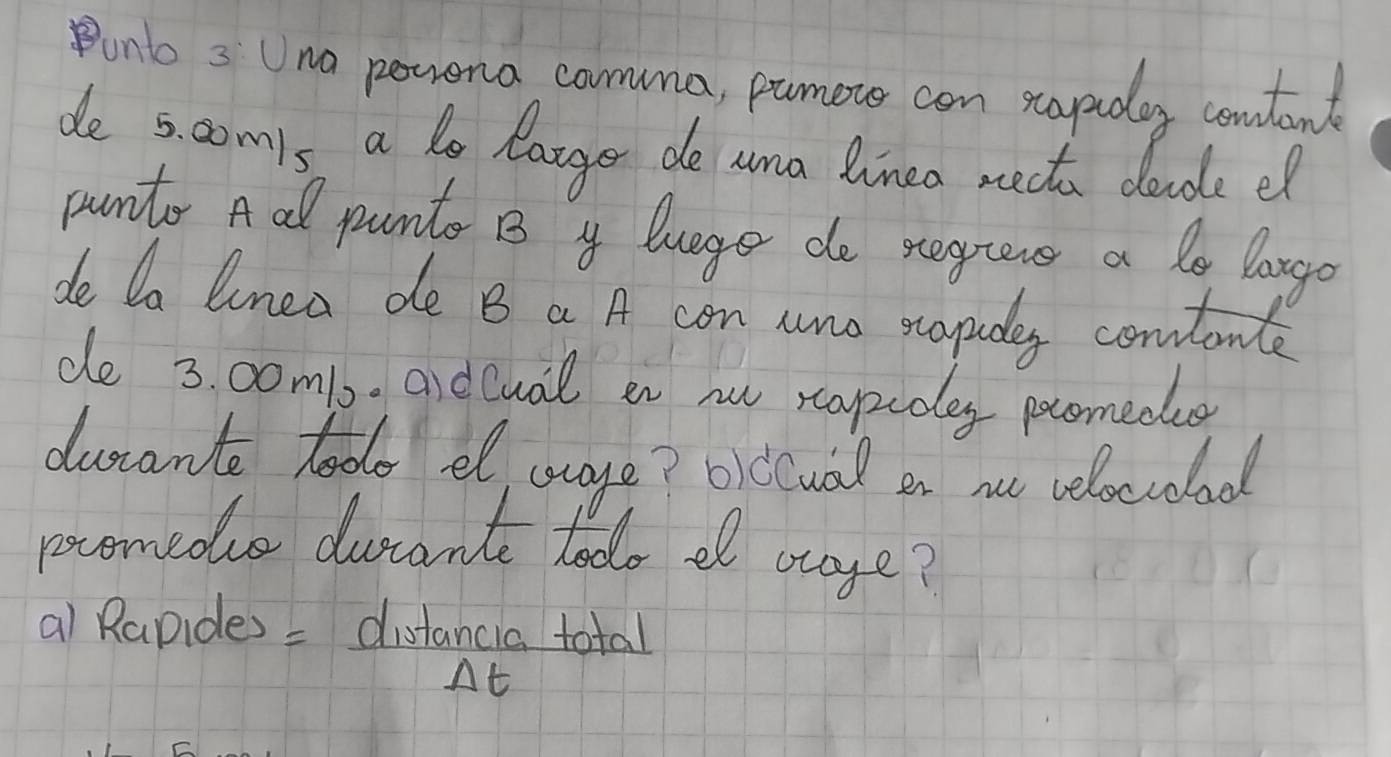 Punto 3: Una persona camina, primero con rapidez constante
de 5.00m/s a lo largo de una línea recta desde el
punto A al punto B y luego de regreso a lo largo
de la linea de B a A con una rapidez constante
de 3.00m/s. a) ¿Cuál es su rapidez promedio
durante todo el viaje? b) ¿Cuál es su velocidad
promedio durante todo el viaje?
a) Rapides = distancia total
Δt